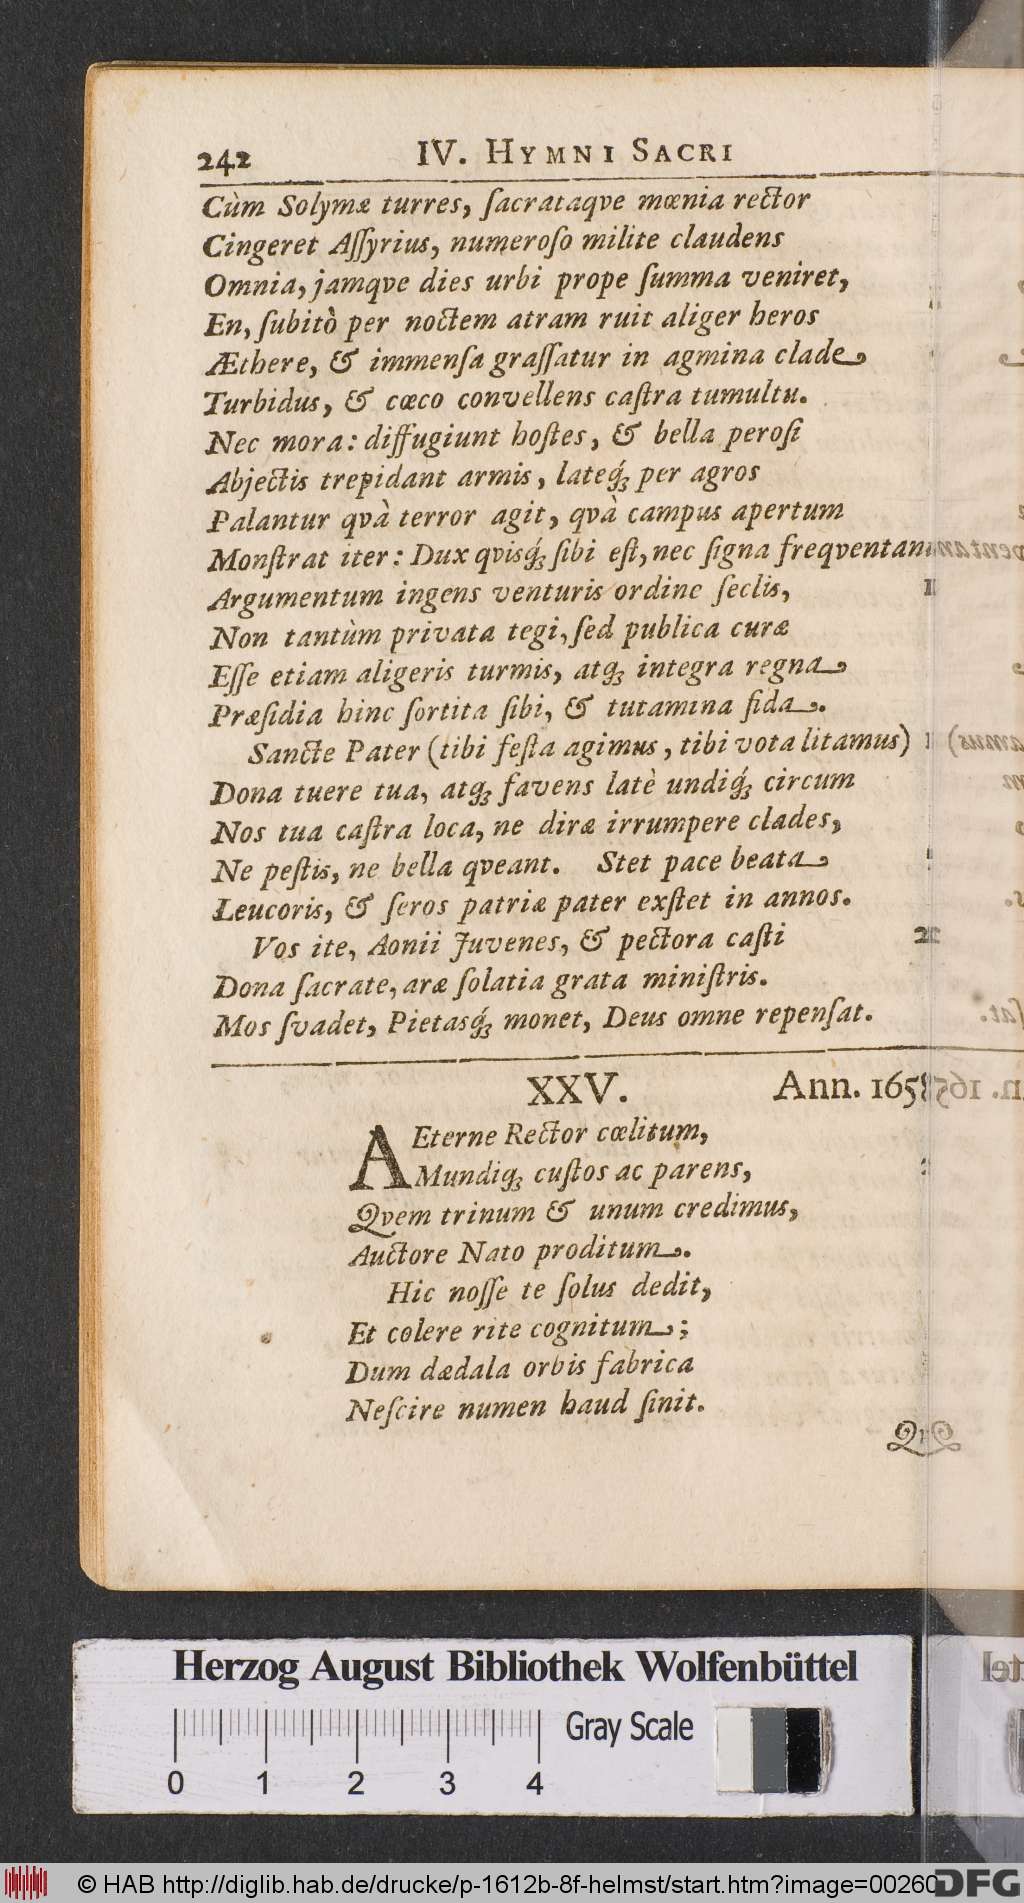 242 IV. HYMNI SACRI
Cùm Solymæ turres, ſacrataqve mœnia rector
Cingeret Aſſyrius, numeroſo milite claudens
Omnia, jamqve dies urbi prope ſumma veniret,
En, ſubitò per noctem atram ruit aliger heros
Æthere, & immenſa graſſatur in agmina clade
Turbidus, & cæco convellens caſtra tumultu.
Nec mora: diffugiunt hoſtes, & bella peroſi
Abjectis trepidant armis, lateq́ꝫ per agros
Palantur qvà terror agit, qvà campus apertum
Monſtrat iter: Dux qvisq́ꝫ ſibi eſt, nec ſigna freqventant
Argumentum ingens venturis ordine ſeclis,
Non tantùm privata tegi, ſed publica curæ
Eſſe etiam aligeris turmis, atqꝫ integra regna
Præſidia hinc ſortita ſibi, & tutamina fida.
Sancte Pater (tibi feſta agimus, tibi vota litamus)
Dona tuere tua, atqꝫ favens latè undiq́ꝫ circum
Nos tua caſtra loca, ne diræ irrumpere clades,
Ne peſtis, ne bella qveant. Stet pace beata
Leucoris, & ſeros patriæ pater exſtet in annos.
Vos ite, Aonii Juvenes, & pectora caſti
Dona ſacrate, aræ ſolatia grata miniſtris.
Mos ſvadet, Pietasq́ꝫ monet, Deus omne repenſat.
XXV. Ann. 1658
AEterne Rector cœlitum,
Mundiqꝫ cuſtos ac parens,
Qvem trinum & unum credimus,
Auctore Nato proditum.
Hic noſſe te ſolus dedit,
Et colere rite cognitum;
Dum dædala orbis fabrica
Neſcire numen haud ſinit.
Herzog August Bibliothek Wolfenbüttel
Gray Scale
0 1 2 3 4
© HAB http://diglib.hab.de/drucke/p-1612b-8f-helmst/start.htm?image=00260
DFG